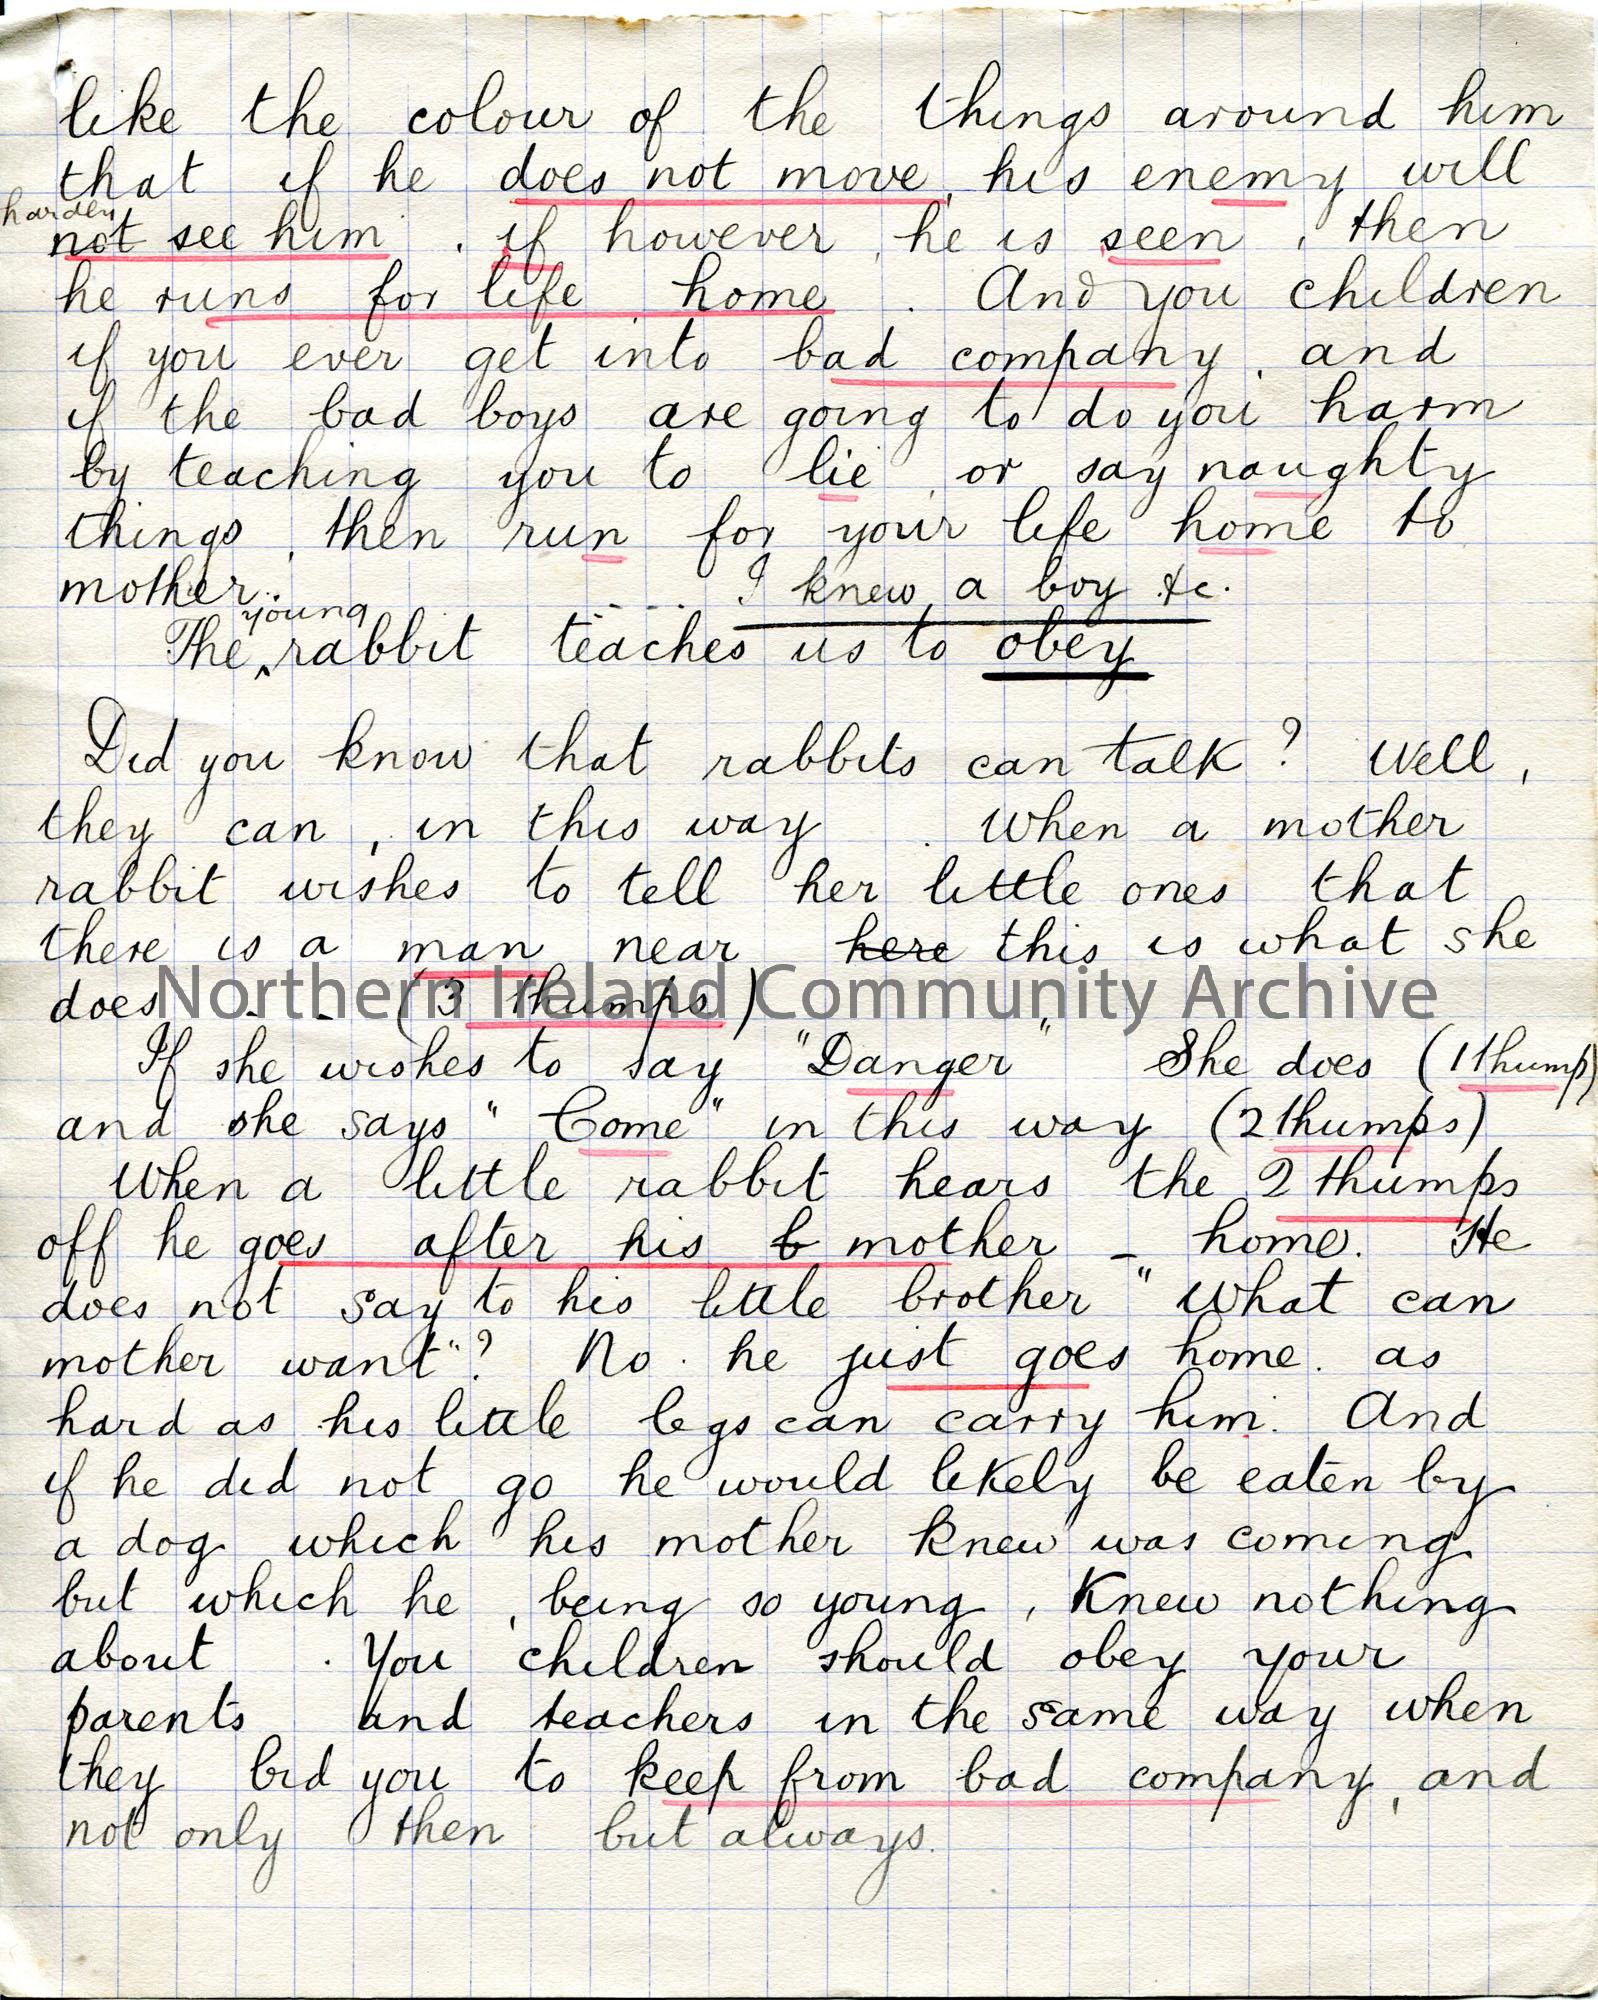 like the colour of the things around him
that if he does not move, his enemy will
harden
not see him. if however, he is seen, then
he runs for life, home. And you children
if you ever get into bad company, and
if the bad boys are going to do you harm
by teaching you to lie, or say naughty
things, then run for your life home to
mother. - - - I knew a boy &c.
young
The ‸ rabbit teaches us to obey
Did you know that rabbits can talk? Well,
they can, in this way. When a mother
rabbit wishes to tell her little ones that
there is a man near here this is what she
does - - (3 thumps)
Northern Ireland Community Archive
If she wishes to say "Danger" She does (1 thump)
and she says "Come" in this way (2 thumps)
When a little rabbit hears the 2 thumps
off he goes after his b mother - home. He
does not say to his little brother "What can
mother want"? No. he just goes home. as
hard as his little legs can carry him. And
if he did not go he would likely be eaten by
a dog which his mother knew was coming
but which he, being so young, knew nothing
about. You children should obey your
parents and teachers in the same way when
they bid you to keep from bad company, and
not only then but always.